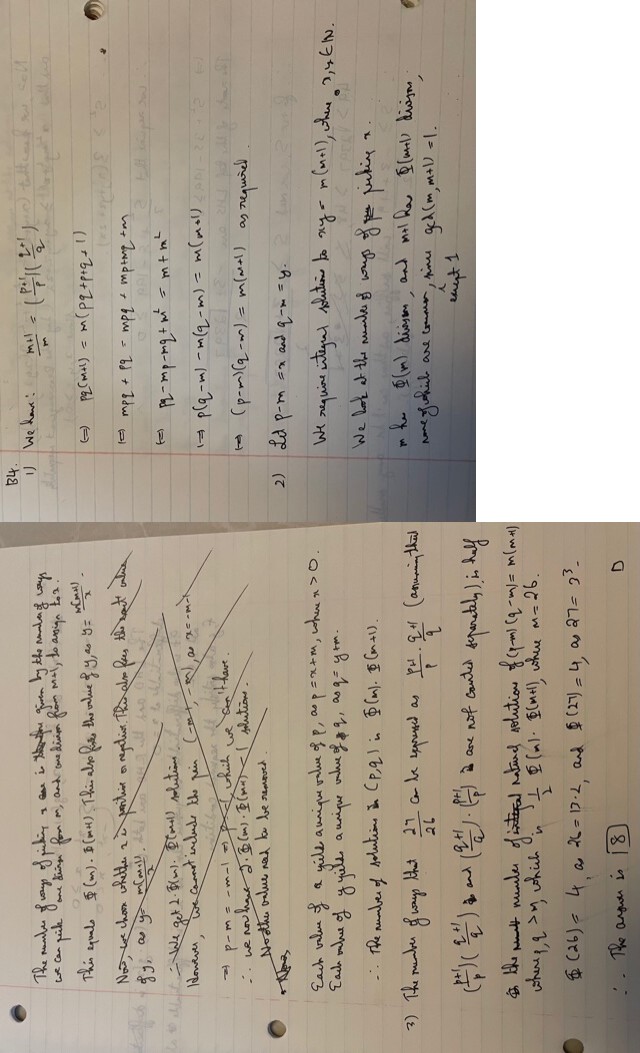 B4.
1) We have: m+1/m = (p+1/p)(q+1/q)
(=) pq(m+1) = m(pq+p+q+1)
(=) mpq + pq = mpq + mp+mq+m
(=) pq-mp-mq+m² = m+m²
(=) p(q-m) - m(q-m) = m(m+1)
(=) (p-m)(q-m) = m(m+1) as required.
2) Let p-m=x and q-m=y.
We require integral solutions to xy = m(m+1), where x,y ∈ N.
We look at the number of ways of picking x.
m has Φ(m) divisors, and m+1 has Φ(m+1) divisors,
none of which are common, except 1 since gcd(m, m+1) = 1.
The number of ways of picking x is given by the number of ways
we can pick one divisor from m, and one divisor from m+1, to assign to x.
This equals Φ(m).Φ(m+1). This also fixes the value of y, as y = m(m+1)/x.
Now, we choose whether x is positive or negative. This also fixes the value
of y, as y = m(m+1)/x
∴ We get 2.Φ(m).Φ(m+1) solutions.
However, we cannot include the pair (-m-1, -m), as x=-m-1
=) p-m = -m-1 =) p = -1 which we can't have.
∴ we now have 2.Φ(m).Φ(m+1)-1 solutions.
No other values need to be removed.
Each value of x yields a unique value of p, as p=x+m, where x>0.
Each value of y yields a unique value of q, as q=y+m.
∴ The number of solutions (p,q) is Φ(m).Φ(m+1).
3) The number of ways that 27/26 can be expressed as p+1/p . q+1/q (assuming that
(p+1/p)(q+1/q) and (q+1/q).(p+1/p) are not counted separately), is half
the number of natural solutions of (p-m)(q-m) = m(m+1)
where p,q >m, which is 1/2 Φ(m).Φ(m+1), where m=26.
Φ(26) = 4, as 26=13.2, and Φ(27)=4, as 27=3³.
∴ The answer is 8